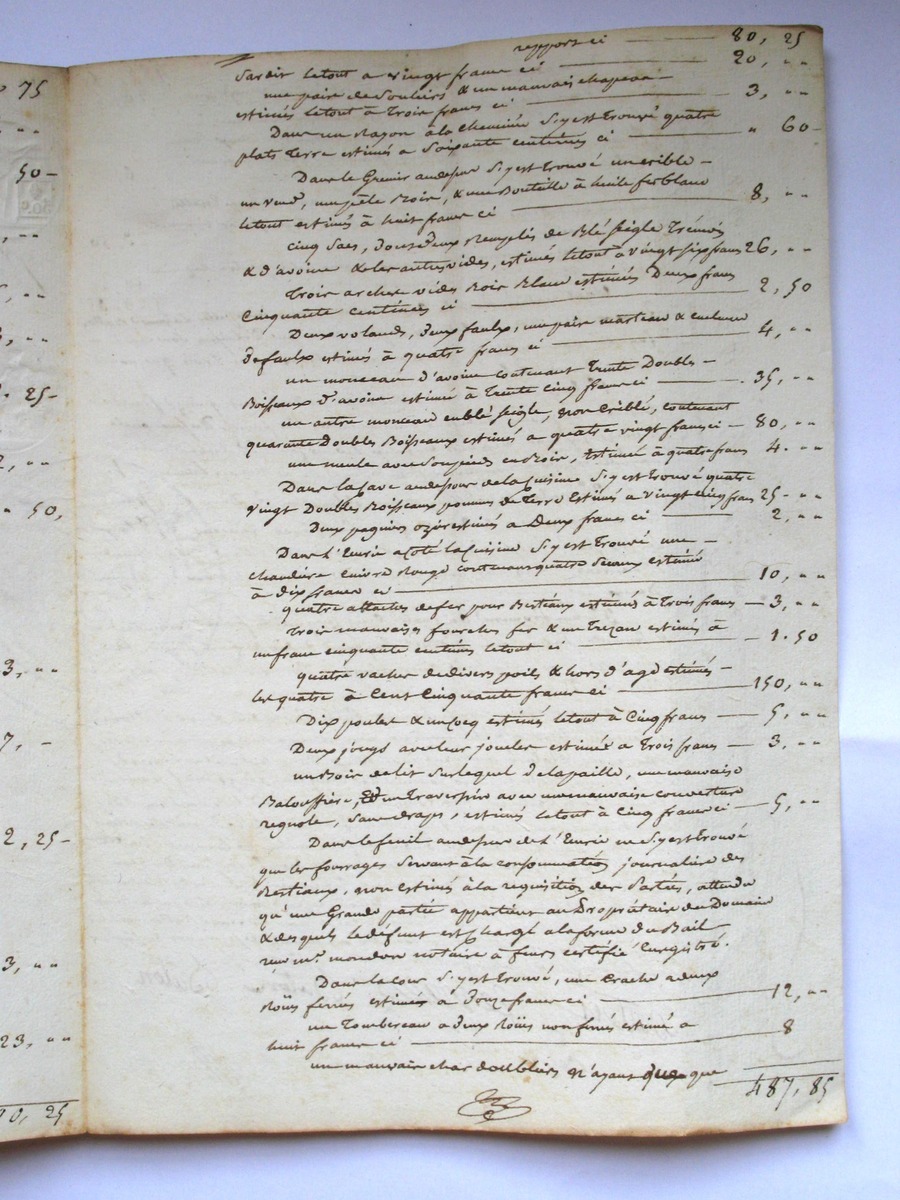 75
50 -
25 -
50,
3, ""
7, -
2, 25 -
3, ""
23, ""
10, 25
report ci — 80, 25
Savoir le tout a vingt francs ci — 20, ""
une paire de Souliers & un mauvais chapeau -
estimés le tout à Trois francs ci — 3, ""
Dans un Rayon à la cheminée S'y est trouvé quatre
plats Terre estimés a Soixante centimes ci — " 60 -
Dans le Grenier au dessus S'y est trouvé un crible -
un , une pèle Bois, & une Bouteille à huile fer blanc
le tout estimés à huit francs ci — 8, ""
cinq Sacs, dont deux Remplis de Blé Seigle Trémois
& d'avoine & les autres vides, estimés le tout a vingt six francs 26, ""
Trois arches vides Bois Blanc estimées Deux francs
Cinquante centimes ci — 2, 50
Deux volands, deux faulx, une paire marteau & enclume
de faulx estimés à quatre francs ci — 4, ""
un monceau d'avoine contenant Trente Doubles -
Boisseaux d'avoine estimé à Trente Cinq francs ci — 35, ""
un autre monceau en blé Seigle, non Criblé, contenant
quarante Doubles Boisseaux estimés a quatre vingt francs ci — 80, ""
une meule avec Son pied en Bois, Estimée à quatre francs 4. ""
Dans la Cave au dessous de la Cuisine S'y est Trouvé quatre
vingt Doubles Boisseaux pommes de Terre Estimés a vingt cinq francs 25 - ""
Deux pagniers ozier estimés a Deux francs ci — 2, ""
Dans l'Ecurie a côté la Cuisine S'y est Trouvé une -
chaudière Cuivre Rouge contenant quatre Seaux estimée
à dix francs ci — 10, ""
quatre attaches de fer pour Bestiaux estimées à Trois francs — 3, ""
Trois mauvaises fourches fer & un Trezan estimés à
un franc cinquante centimes le tout ci — 1. 50
quatre vaches de divers poils & hors d'age estimés -
les quatre à Cent Cinquante francs ci — 150, ""
Dix poules & un Coq estimés le tout à Cinq francs — 5, ""
Deux jougs avec leur joucles estimés a Trois francs — 3, ""
un Bois de lit Sur lequel de la paille, une mauvaise
Balouffière, & un Traversin avec une mauvaise couverture
, Sans draps, estimés le tout à Cinq francs ci — 5, ""
Dans le fenil au dessus de l'Ecurie ne S'y est trouvé
que les fourrages Servant à la consommation journalière des
Bestiaux, non estimés à la requisition des Parties, attendu
qu'une Grande partie appartient au Propriétaire du Domaine
& desquels le défunt est chargé à la forme du Bail
reçu me mondon notaire à feurs certifié Enregistré.
Dans la Cour S'y est trouvé, une Crache a deux
Roües ferrées estimées à Douze francs ci — 12, ""
un Tombereau a deux Roües non ferrés estimé a
huit francs ci — 8
un mauvais char doubliers N'ayant que
487, 85